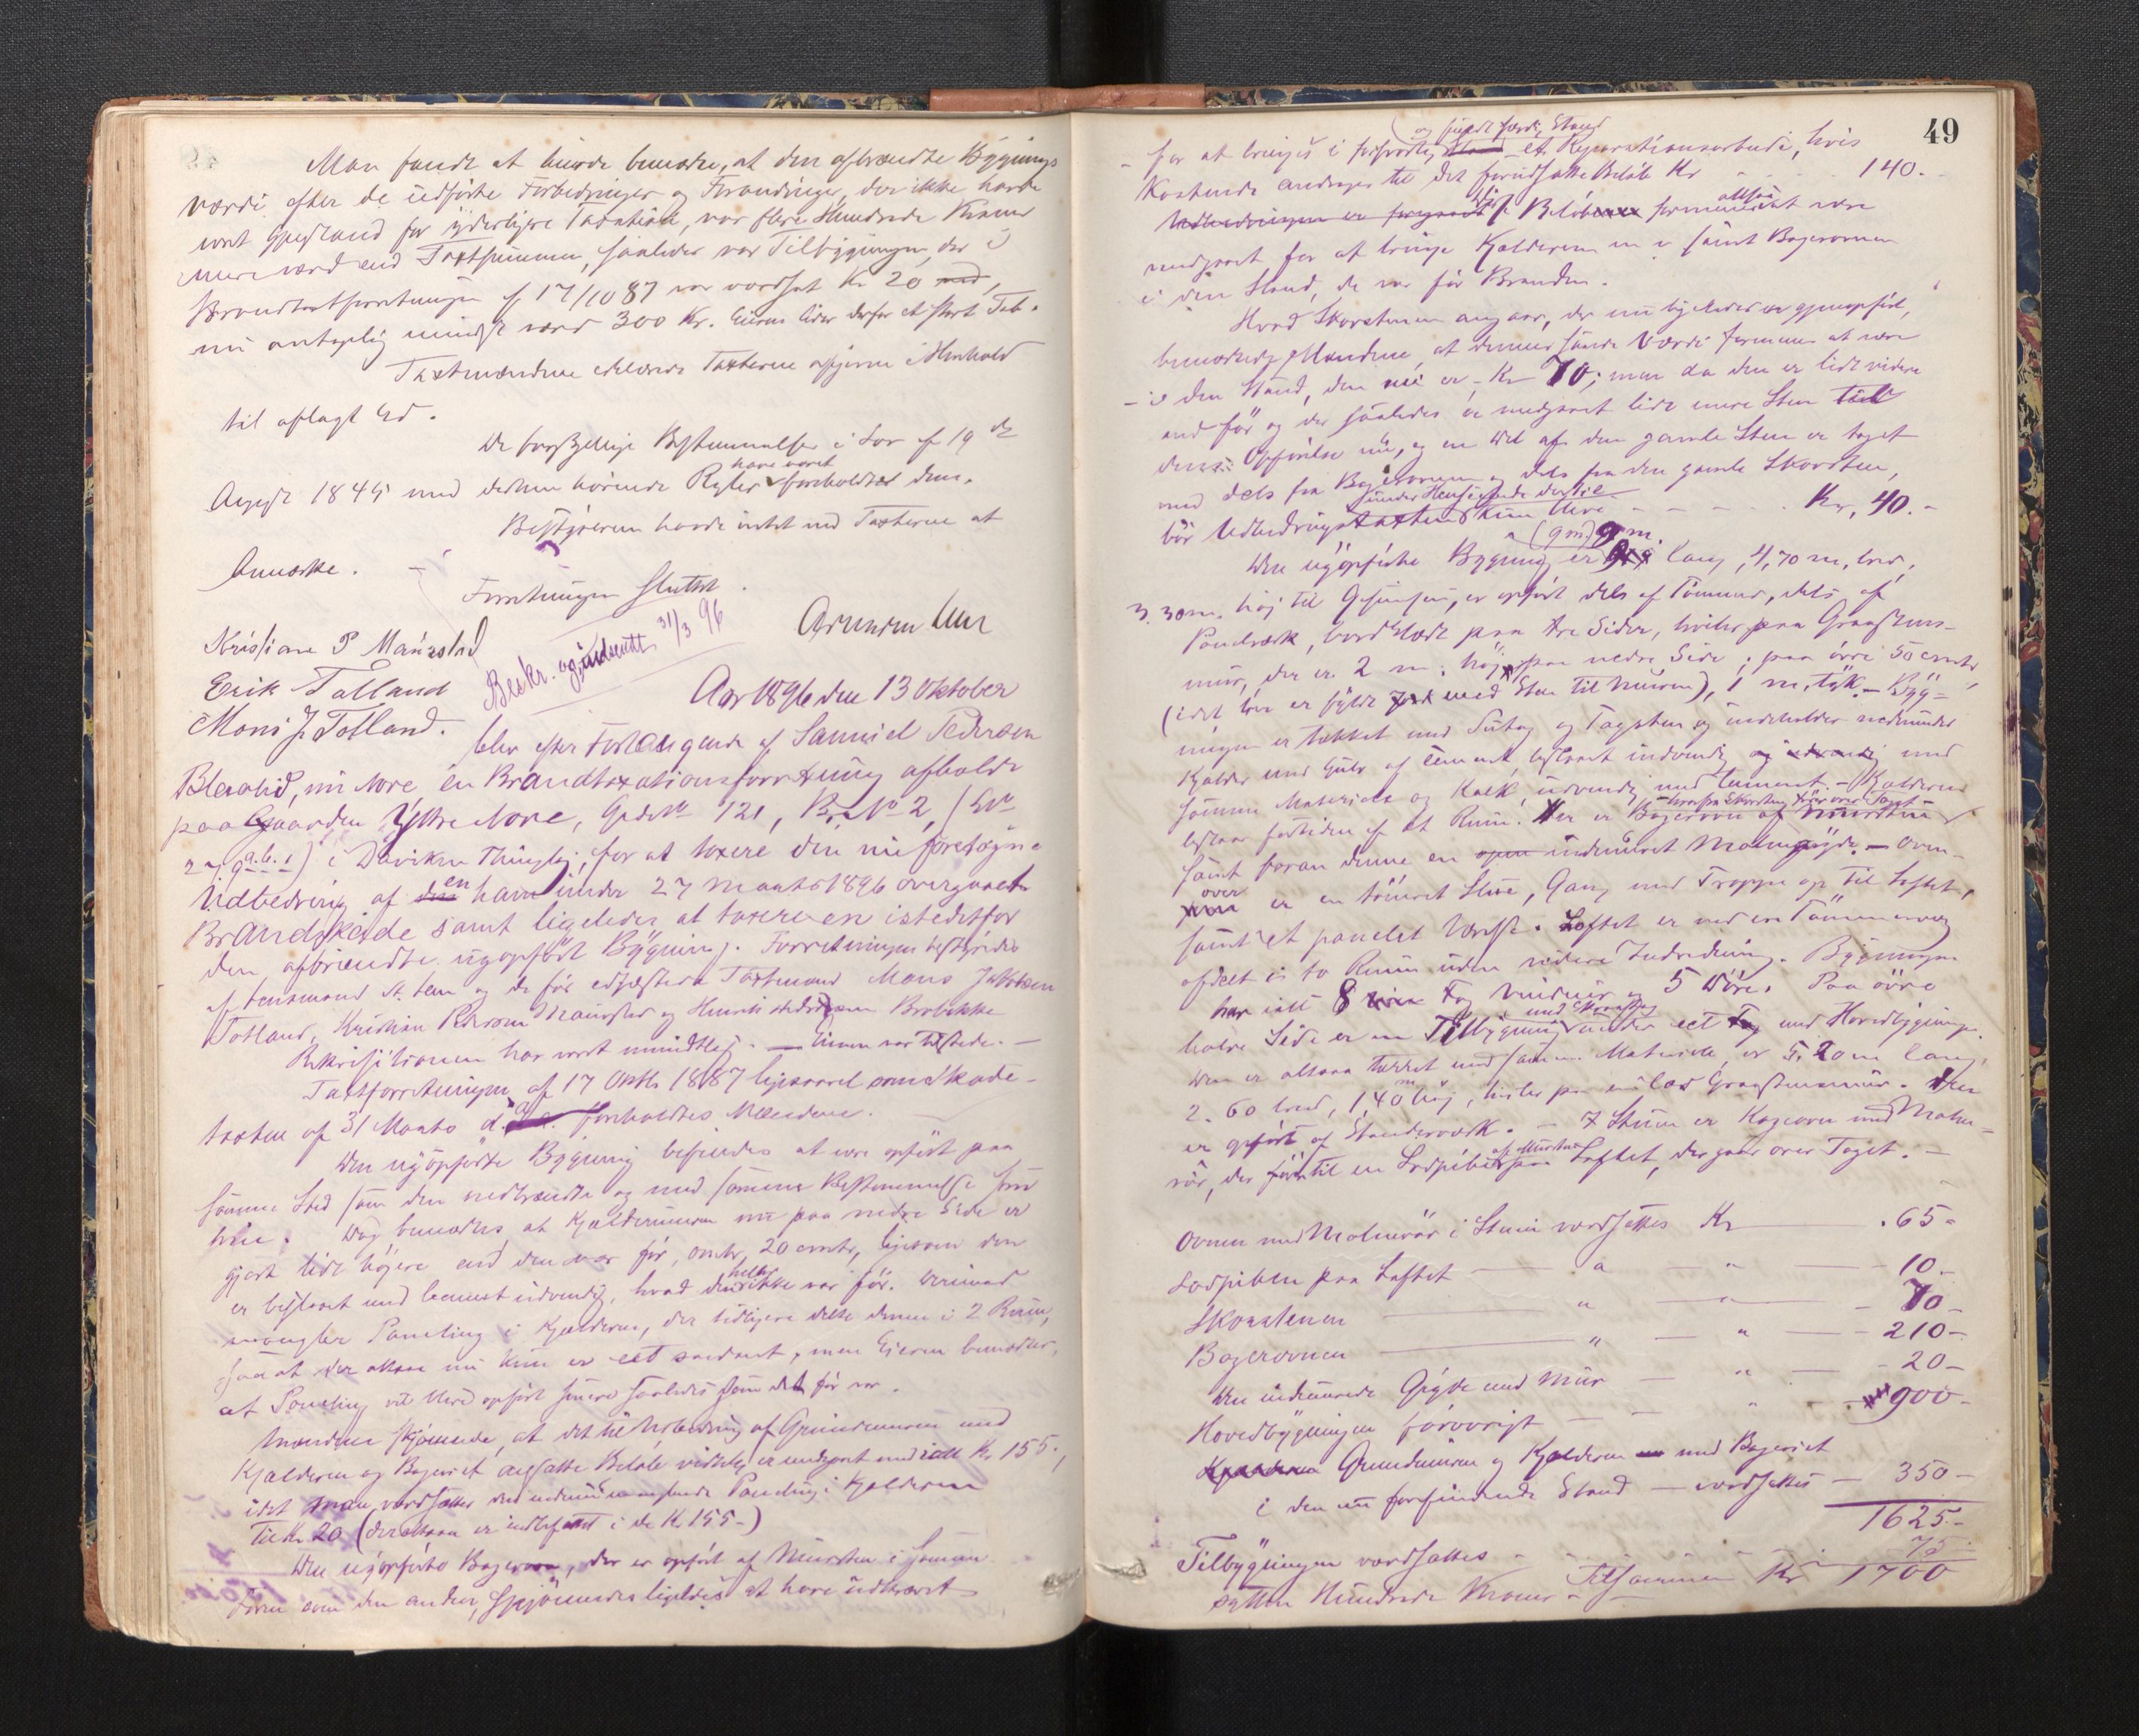 Man fandt at burde bemærke, at den afbrændte Bygnings
værdi efter de udførte Forbedringer og Forandringer, der ikke havde
været Gjenstand for yderligere Taxation, var flere Hundrede Kroner
mere værd end Taxtsummen, saaledes var Tilbygningen, der i
Brandtaxtforretningen af 17/10 87 var værdsat Kr 20 med,
nu antagelig mindst værd 300 Kr. Eieren lider derfor et stort Tab.
Taxtmændene erklærede Taxterne afgivne i Henhold
til aflagt Ed.
De forskjellige Bestemmelser i Lov af 19de
August 1845 med dertil hørende Regler have været foreholdte dem.
Bestyreren havde intet ved Taxterne at
Anmærke.
Forretningen sluttet.
31/3 96
Kristiane P Maurstad
Erik Totland
Beskr. og udsendt
Mons J. Totland.
Aar 1896 den 13 Oktober
blev efter Forlangende af Samuel Pedersen
Blaalid, nu Nore, en Brandtaxationsforretning afholdt
paa Gaarden Yttre Nore, Grds No 121, Br. No 2, (No
2 a, 9 a. b. c) i Daviken Thinglag, for at taxere den nu foretagne
Udbedring af den ham under 27 Marts 1896 overgaaede
Brandskade samt ligeledes at taxere en istedetfor
den afbrændte nyopført Bygning. Forretningen bestyredes
af Lensmand A. Lem og de før edfæstede Taxtmænd Mons Jakobsen
Totland, Kristian Pedersen Maurstad og Henrik
Rekvisitionen har været mundtlig. — Eieren var tilstede. —
Taxtforretningen af 17 Oktbr 1887 ligesaavel som Skade-
taxten af 31 Marts d. a. foreholdtes Mændene.
Den nyopførte Bygning befindes at være opført paa
samme Sted som den nedbrændte og med samme Bestemmelse som
hin. Dog bemærkes, at Kjældermuren nu paa nedre Side er
gjort lidt høiere end den var før, omtr. 20 cmtr, ligesom den
er beslaaet med Cement udvendig, hvad den heller ikke var før. Derimod
mangler Paneling i Kjælderen, der tidligere delte denne i 2 Rum,
saa at der altsaa nu kun er eet saadant, men Eieren bemærker,
at Paneling vil blive opført senere saaledes som det før var.
Mændene skjønnede, at det til Udbedring af Grundmuren med
Kjælderen og Bageriet ansatte Beløb virkelig er medgaaet med ialt Kr 155.,
idet man værdsætter den endnu manglende Paneling i Kjælderen
til Kr 20 (der altsaa er indbefattet i de Kr 155-)
Den nyopførte Bagerovn, der er opført af Mursten i samme
Form som den anden, skjønnedes ligeledes at have udkrævet
49
og fuldt færdig Stand
for at bringes i forsvarlig Stand et Reparationsarbeide, hvis
Kostende andrager til det forudsatte Beløb Kr 140.-
Udbedringen er Beløb formenes altsaa at være
medgaaet for at bringe Kjælderen m v samt Bagerovnen
i den Stand, de var før Branden.
Hvad Skorstenen angaar, der nu ligeledes er gjenopført,
bemærkede Mændene, at dennes sande Værdi formenes at være
- i den Stand, den nu er - Kr 70; men da den er lidt videre
end før og der saaledes er medgaaet lidt mere Sten til
dens Opførelse nu, og en Del af den gamle Sten er taget
med dels fra Bagerovnen og dels fra den gamle Skorsten,
bør Udbedringstaxten under Hensigtende dertil kun blive - - - - Kr, 40.-
(9 m) 9 m.
Den nyopførte Bygning er lang, 4,70 m, bred,
3.30 m. høj til Gesimsen, er opført dels af Tømmer, dels af
Panelværk, bordklædt paa tre Sider, hviler paa Graastens-
mur, der er 2 m. høj paa nedre Side; paa øvre 50 cmtr,
(idet der er fyldt med Sten til Muren), 1 m. tyk. - Byg-
ningen er tækket med Sutag og Tagsten og indeholder nedenunder
Kjælder med Gulv af Cement, beslaaet indvendig og udvendig med
samme Materiale og Kalk, udvendig med Cement. - Kjælderen
- hvorfra Skorsten fører over Taget -
bestaar fortiden af et Rum. Her er Bagerovn af Mursten
samt foran denne en indmuret Malmgryde. - Oven-
over er en tømret Stue, Gang med Trappe op til Loftet,
samt et panelet Værelse. Loftet er ved en Tømmervæg
afdelt i to Rum uden videre Indredning. Bygningen
har ialt 8 Fag Vinduer og 5 Døre. Paa øvre
halve Side er en Tilbygning med Skraatag under eet Tag med Hovedbygningen.
Den er altsaa tækket med samme Materiale, er 5.20 m lang,
2. 60 bred, 1,40 m høj, hviler paa en lav Graastensmur. Den
er opført af Standerværk. - I Stuen er Kogeovn med Malm-
rør, der fører til en Lodpibe af Mursten paa Loftet, der gaar over Taget. -
Ovnen med Malmrør i Stuen værdsættes Kr - - 65 -
Lodpiben paa Loftet — a — " — 10 -
Skorstenen — " — " — 70 -
Bagerovnen — " — " — 210 -
Den indmurede Gryde med Mur — " — 20 -
Hovedbygningen forøvrigt — — " — 900 -
Kjælderen Grundmuren og Kjælderen med Bageriet
i den nu forefindende Stand — værdsættes — 350 -
1625 -
Tilbygningen værdsættes - - 75 -
Tilsammen Kr 1700
sytten Hundrede Kroner -